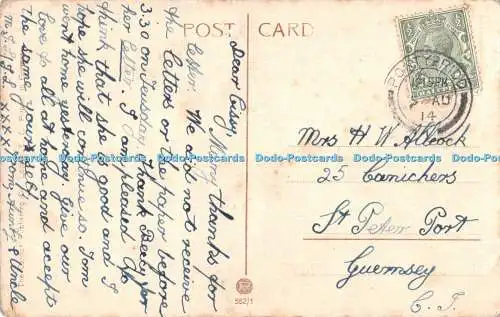 POST CARD
Dear Cissy, Many thanks for
the letter. We did not receive
the letters or the paper before
3.30 on Tuesday. Thank Percy for
her letter. I am pleased to
think that she is good and I
hope she will continue so. Jim
went home yesterday. Give our
love to all at home and accept
the same yourself.
Aunt & Uncle
XXXX
PONTYPRIDD
AU
14
Mrs H W Allcock
25 Canichers
St Peter Port
Guernsey
C. I.
552/1
Dodo-Postcards Dodo-Postcards Dodo-Postcards Dodo-Postcards Dodo-Postcards